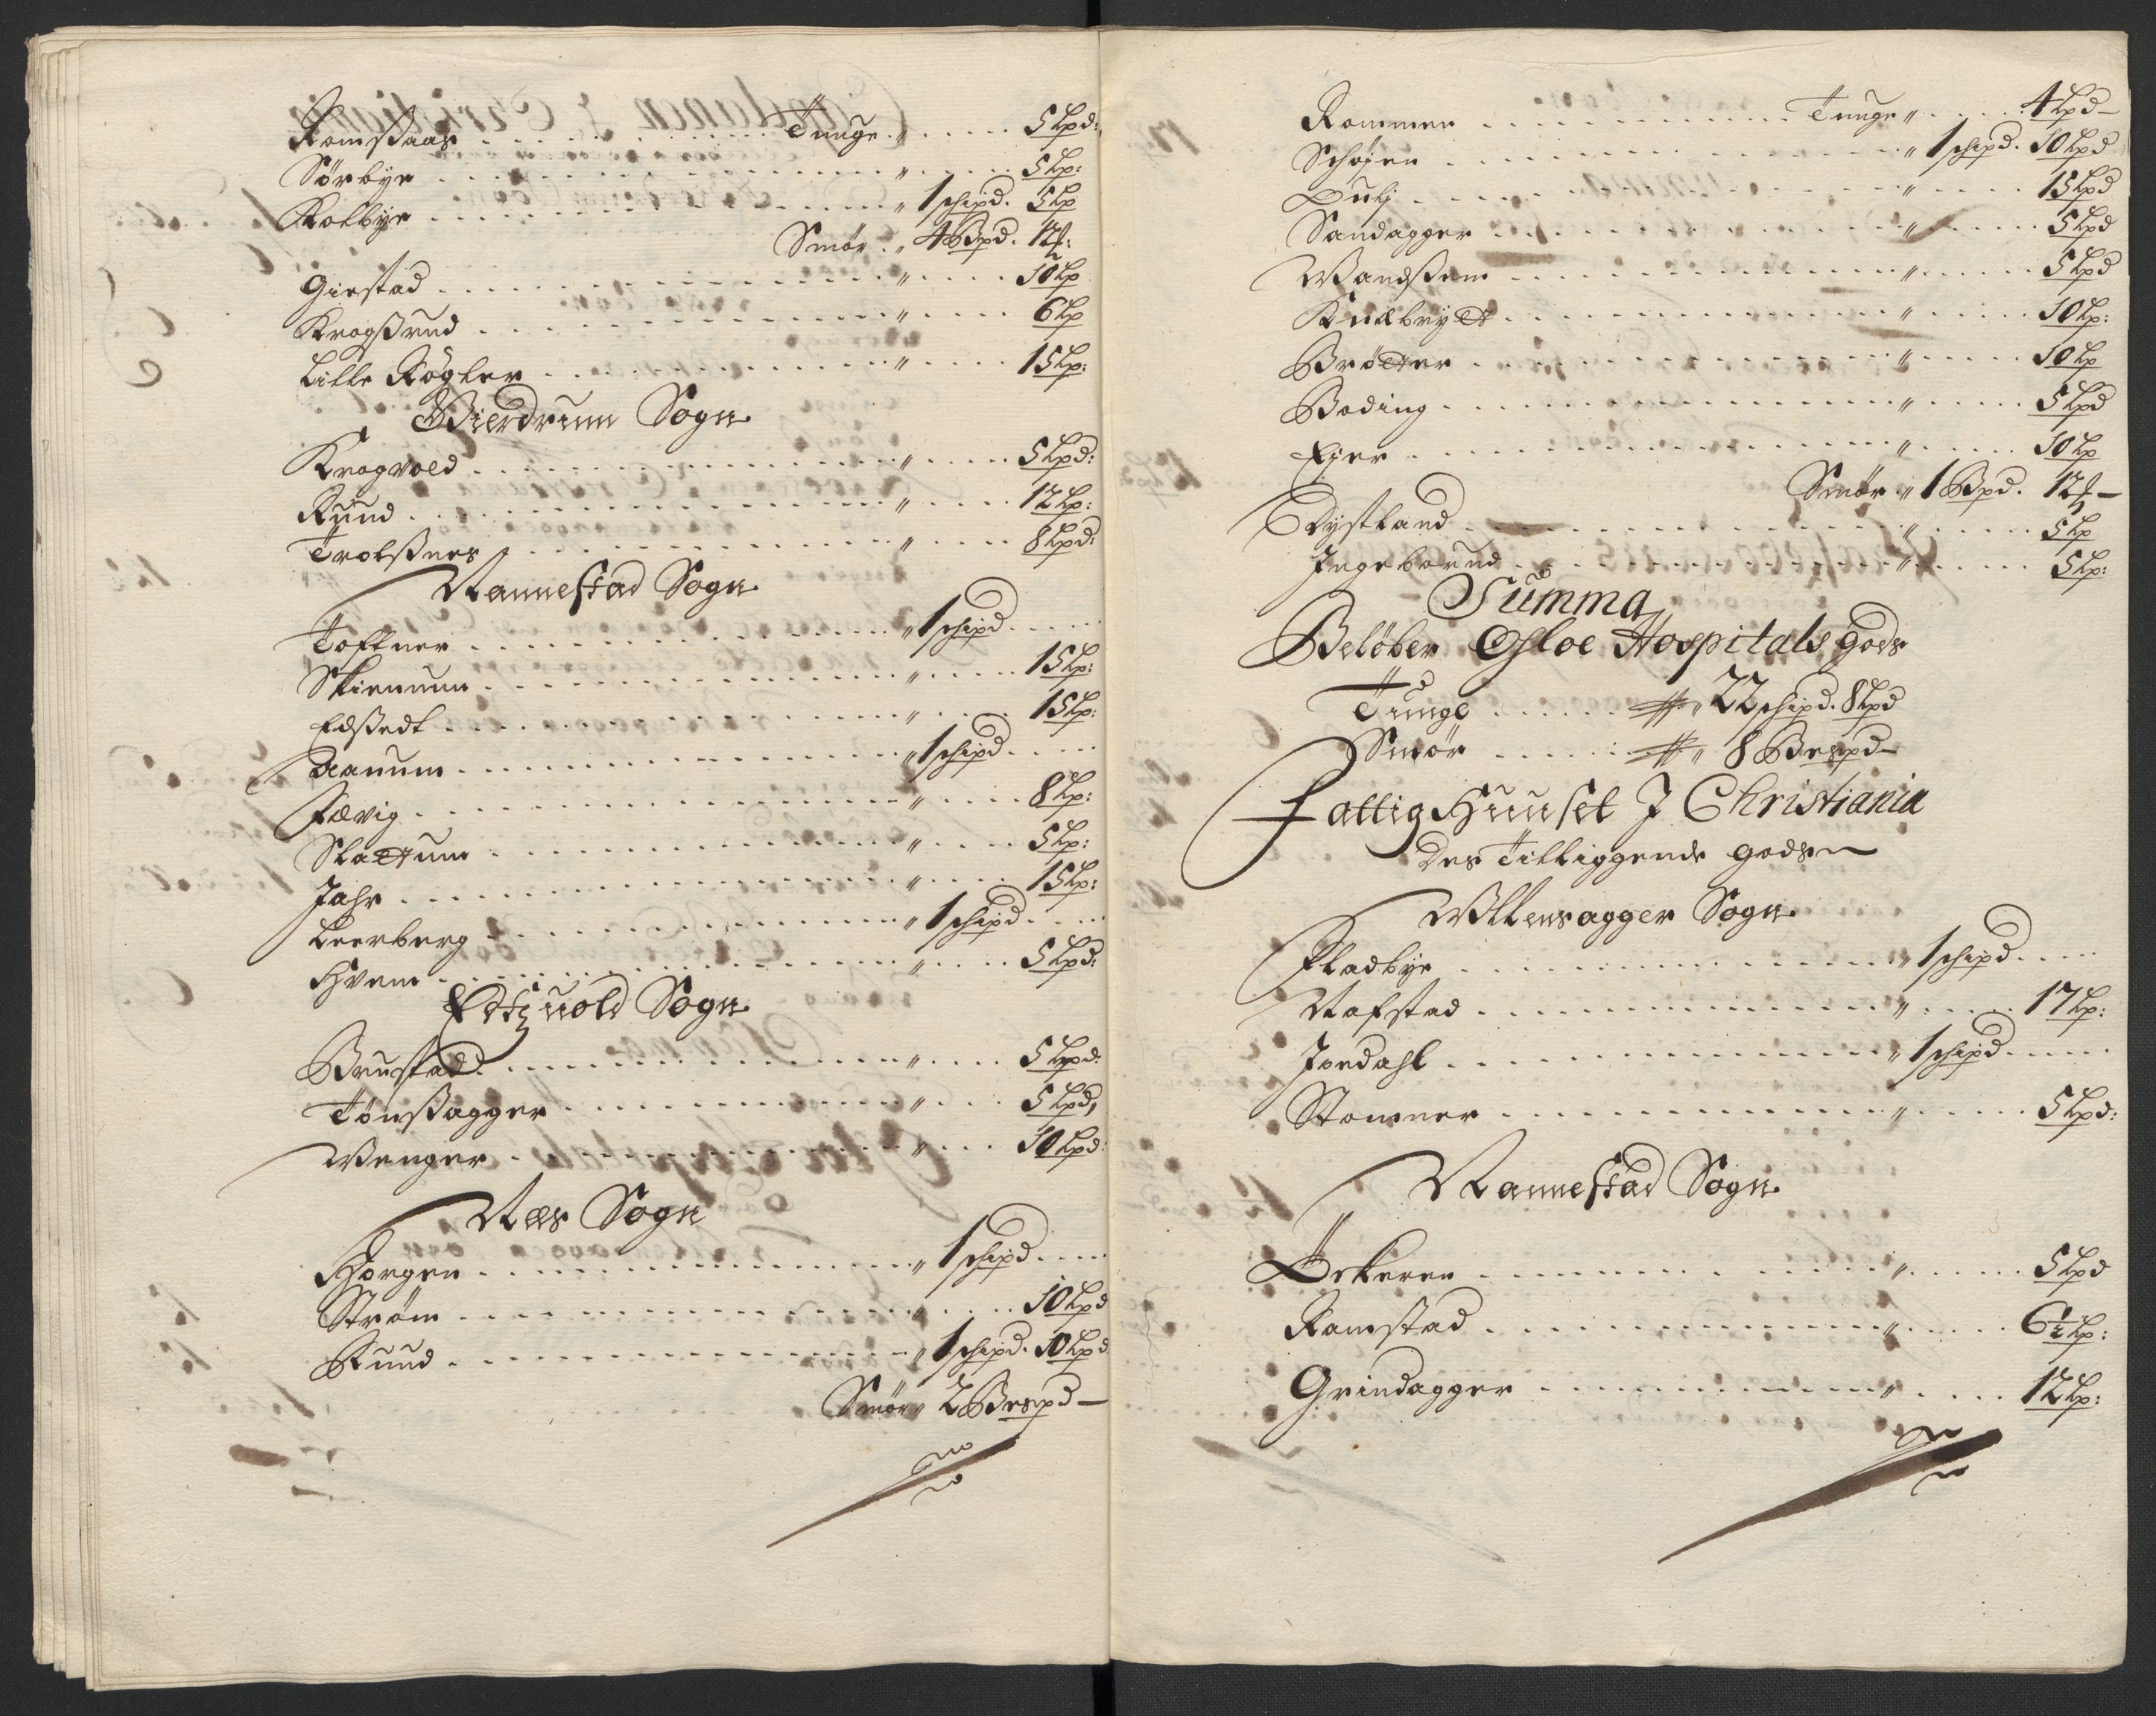 Romsaas . . . Tunge " . . . 5 Lpd:
Sørbye . . . " . . . 5 Lp:
Kolbye . . . " 1 schipd. 5 Lp
Smør . " 4 Bpd. 12 
Girstad . . . " . . . 10 Lp
Krogsrud . . . " . . . 6 Lp
Lille Røgler . . . " . . . 15 Lp:
Gierdrum Sogn
Krogvold . . . " . . . 5 Lpd:
Ruud . . . " . . . 12 Lp:
Trolsnes . . . " . . . 8 Lpd:
Nannestad Sogn
Toftner . . . " 1 schipd . . .
Skienum . . . " . . . 15 Lp:
Edstedt . . . " . . . 15 Lp:
Aanum . . . " 1 schipd . . .
Fævig . . . " . . . 8 Lp:
Slattum . . . " . . . 5 Lp:
Jahr . . . " . . . 15 Lp:
Leerberg . . . " 1 schipd . . .
Hvem . . . " . . . 5 Lpd:
Edtzuold Sogn
Brustad . . . " . . . 5 Lpd:
Tønsagger . . . " . . . 5 Lpd,
Wenger . . . " . . . 10 Lpd:
Næs Sogn
Horgen . . . " 1 schipd . . .
Strøm . . . " . . . 10 Lpd
Ruud . . . " 1 schipd. 10 Lpd
Smør " 2 Bespd —
Rommen . . . Tunge " . . . 4 Lpd —
Schøjen . . . " 1 schipd. 10 Lpd
Huly . . . " . . . 15 Lpd
Sandagger . . . " . . . 5 Lpd
Wandsem . . . " . . . 5 Lpd
Knæbryett . . . " . . . 10 Lp:
Brøtter . . . " . . . 10 Lp
Boding . . . " . . . 5 Lpd
Ejer . . . " . . . 10 Lp
Smør . " 1 Bpd. 12 —
Dystland . . . " . . . 5 Lp
Ingeborud . . . " . . . 5 Lp:
Summa
Beløber Osloe Hospitals gods
Tunge . . . " 22 schipd. 8 Lpd
Smør . . . " 8 Bespd —
Fattig Huuset J Christiania
Des Tilliggende gods
Ullensagger Sogn
Fladbye . . . " 1 schipd . . .
Nafstad . . . " . . . 17 Lp:
Jordahl . . . " 1 schipd . . .
Stomner . . . " . . . 5 Lpd:
Nannestad Sogn
Ækeren . . . " . . . 5 Lpd
Ramstad . . . " . . . 6½ Lp:
Grindagger . . . " . . . 12 Lp: